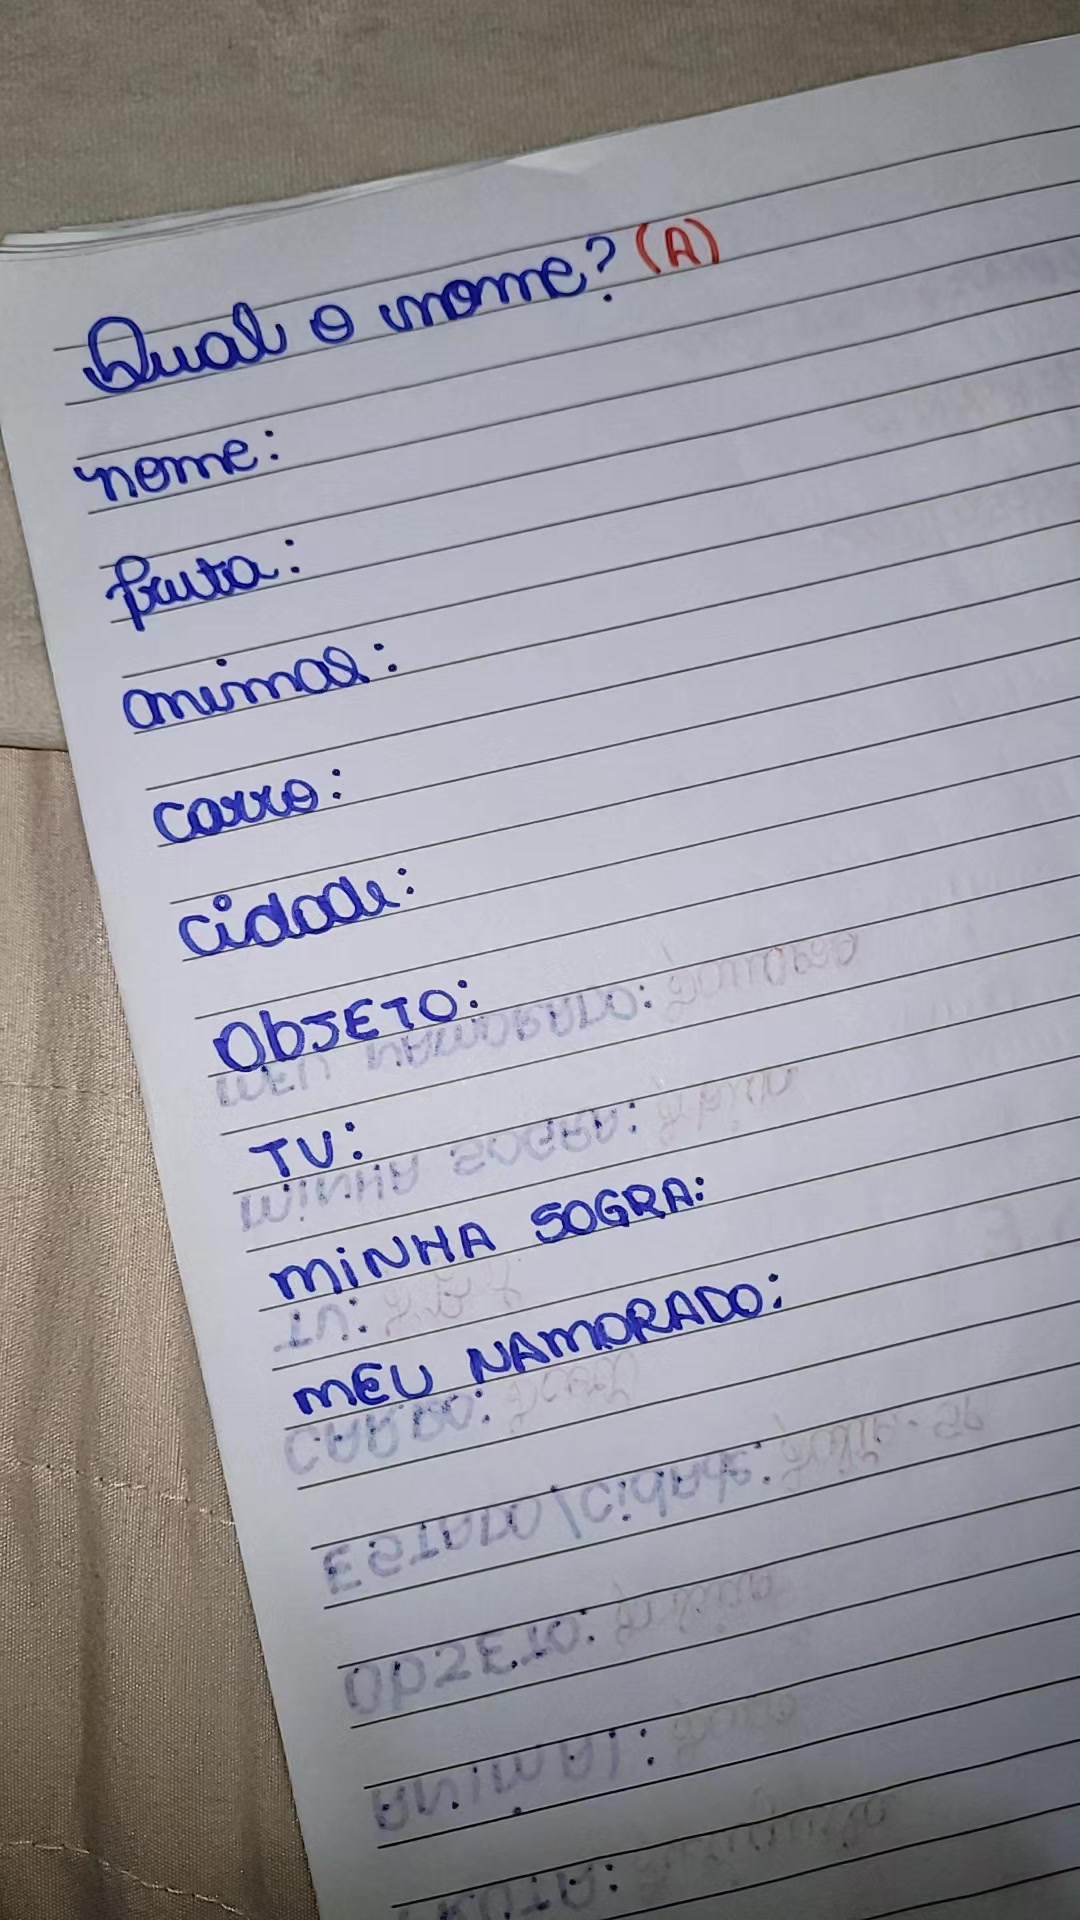 Qual o nome? (A)
nome:
fruta:
animal:
carro:
cidade:
OBJETO:
TV:
MINHA SOGRA:
MEU NAMORADO: